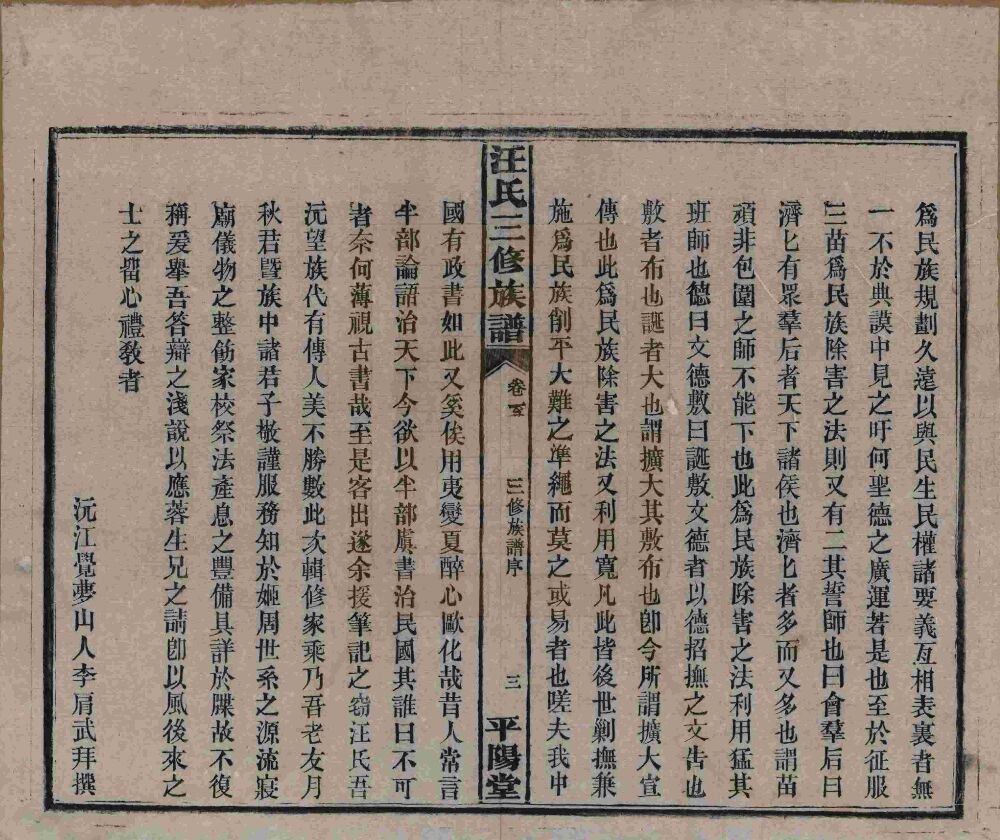 爲民族規劃久遠以與民生民權諸要義亙相表裏者無
一不於典謨中見之吁何聖德之廣運若是也至於征服
三苗爲民族除害之法則又有二其誓師也曰會羣后曰
濟匕有眾羣后者天下諸侯也濟匕者多而又多也謂苗
頑非包圍之師不能下也此爲民族除害之法利用猛其
班師也德曰文德敷曰誕敷文德者以德招撫之文告也
敷者布也誕者大也謂擴大其敷布也卽今所謂擴大宣
傳也此爲民族除害之法又利用寬凡此皆後世剿撫兼
施爲民族削平大難之準繩而莫之或易者也嗟夫我中
汪氏三修族譜
卷首
三修族譜序
三
平陽堂
國有政書如此又奚俟用夷變夏醉心歐化哉昔人常言
半部論語治天下今欲以半部虞書治民國其誰曰不可
者奈何薄視古書哉至是客出遂余援筆記之竊汪氏吾
沅望族代有傳人美不勝數此次輯修家乘乃吾老友月
秋君暨族中諸君子敬謹服務知於姬周世系之源流寢
廟儀物之整飭家校祭法產息之豐備具詳於牒故不復
稱爰舉吾答辯之淺說以應蓉生兄之請卽以風後來之
士之留心禮教者
沅江覺夢山人李肩武拜撰